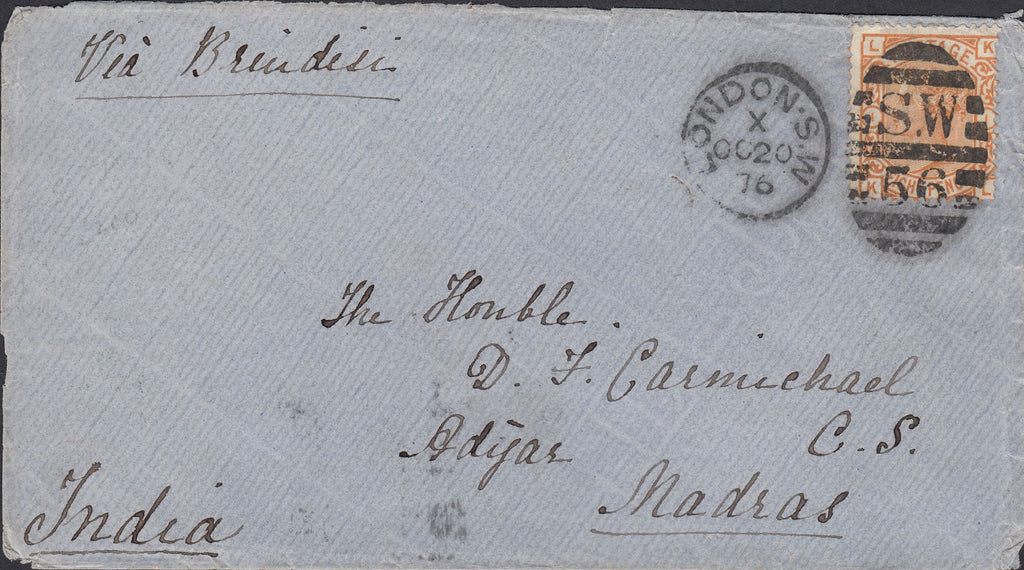 Via Brindisi
LONDON·S.W
X
OC20
76
L K
POSTAGE
S.W
56
K L
The Honble.
D. F. Carmichael
Adÿar C. S.
Madras
India